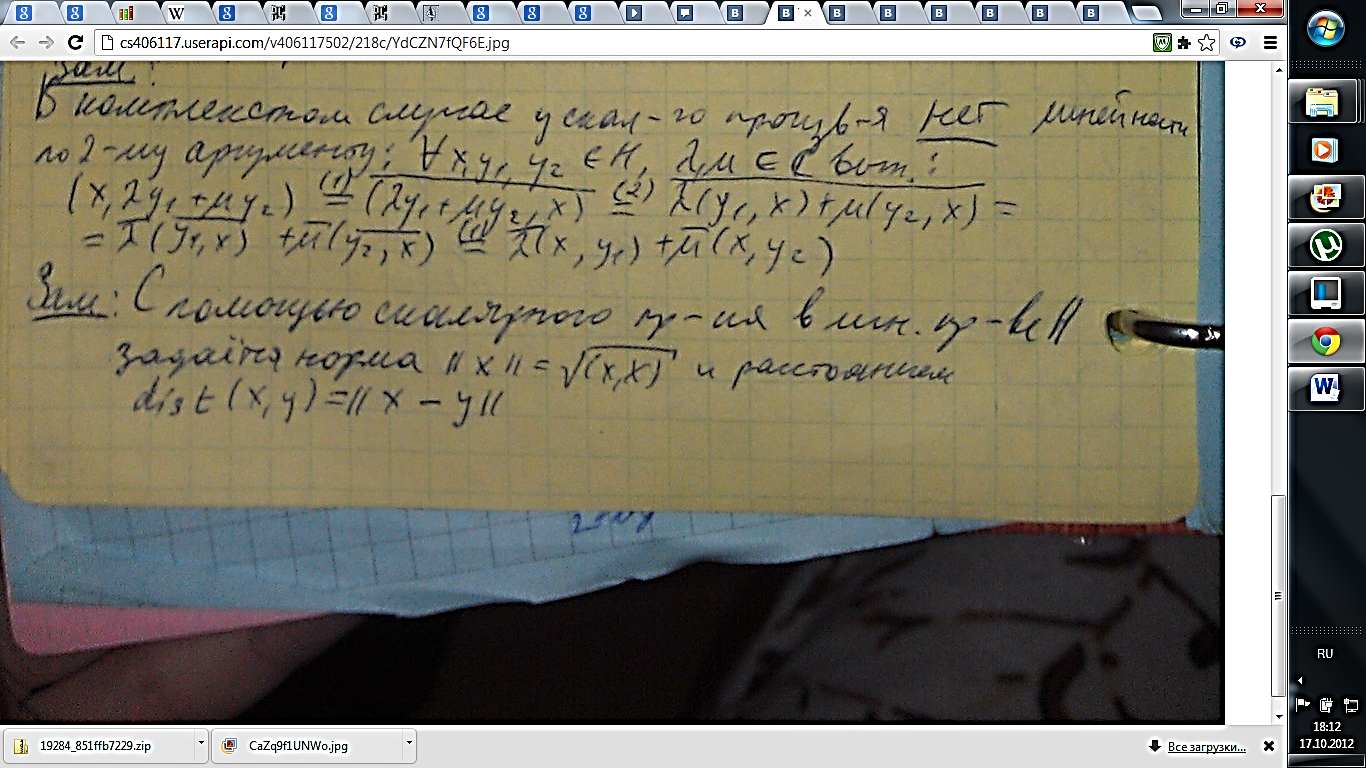 cs406117.userapi.com/v406117502/218c/YdCZN7fQF6E.jpg
Зам:
В комплексном случае у скал-го произв-я нет линейности
по 2-му аргументу: ∀x, y₁, y₂ ∈ H, λ, μ ∈ ℂ вып.:
(x, λy₁+μy₂) (1)= \overline{(λy₁+μy₂, x)} (2)= \overline{λ(y₁, x)+μ(y₂, x)} =
= \overline{λ}\overline{(y₁, x)} + \overline{μ}\overline{(y₂, x)} (1)= \overline{λ}(x, y₁) + \overline{μ}(x, y₂)
Зам: С помощью скалярного пр-ия в лин. пр-ве H
задаётся норма ||x|| = √(x,x) и расстоянием
dist(x, y) = ||x − y||
RU
18:12
17.10.2012
19284_851ffb7229.zip
CaZq9f1UNWo.jpg
Все загрузки...